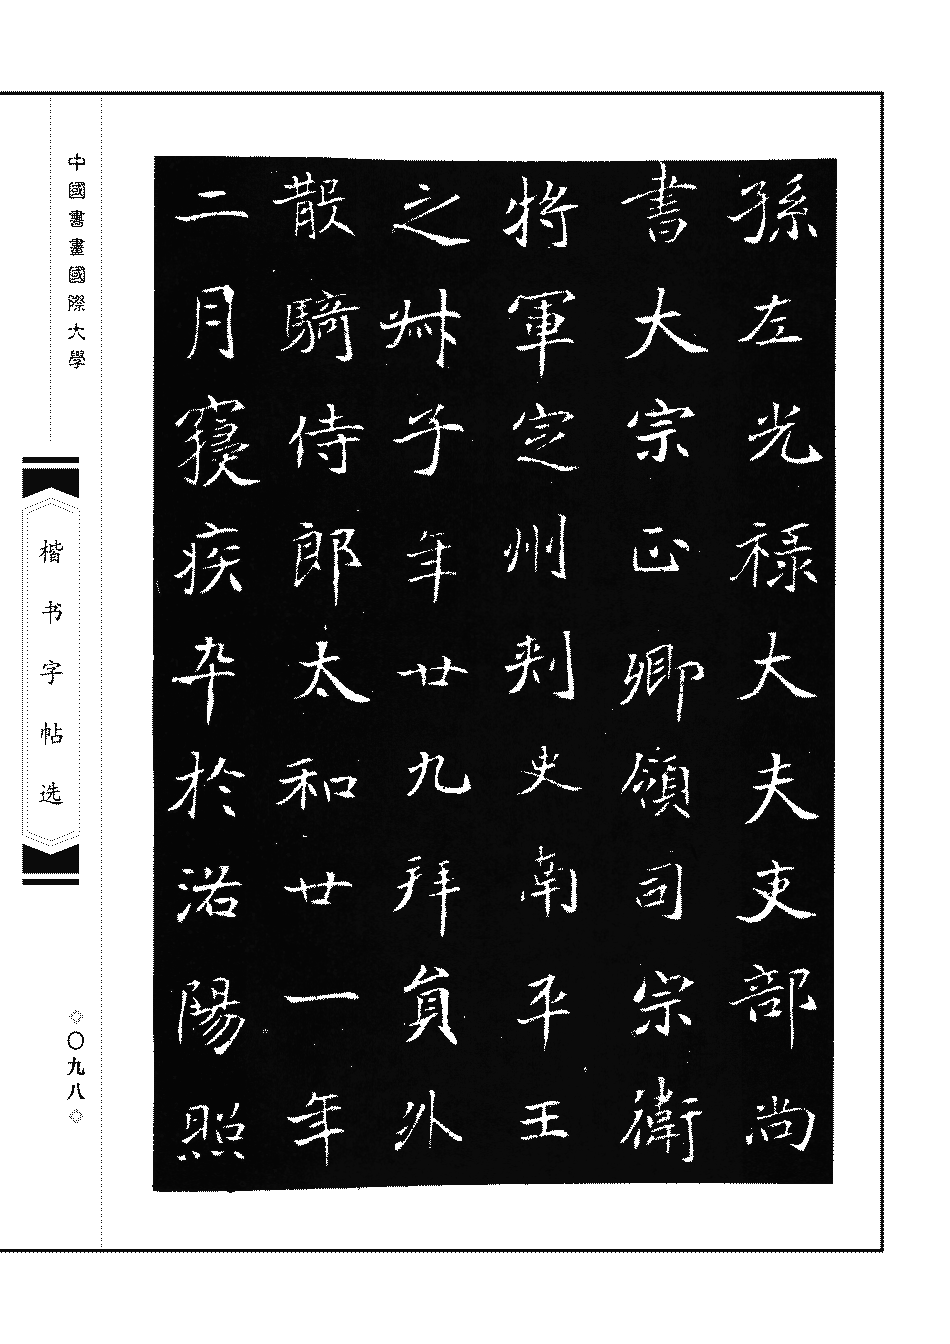 孫左光祿大夫吏部尚
書大宗正卿領司宗衛
將軍定州刺史南平王
之叔子年廿九拜員外
散騎侍郎太和廿一年
二月寢疾卒於洛陽照
中國書畫國際大學
楷书字帖选
◇〇九八◇